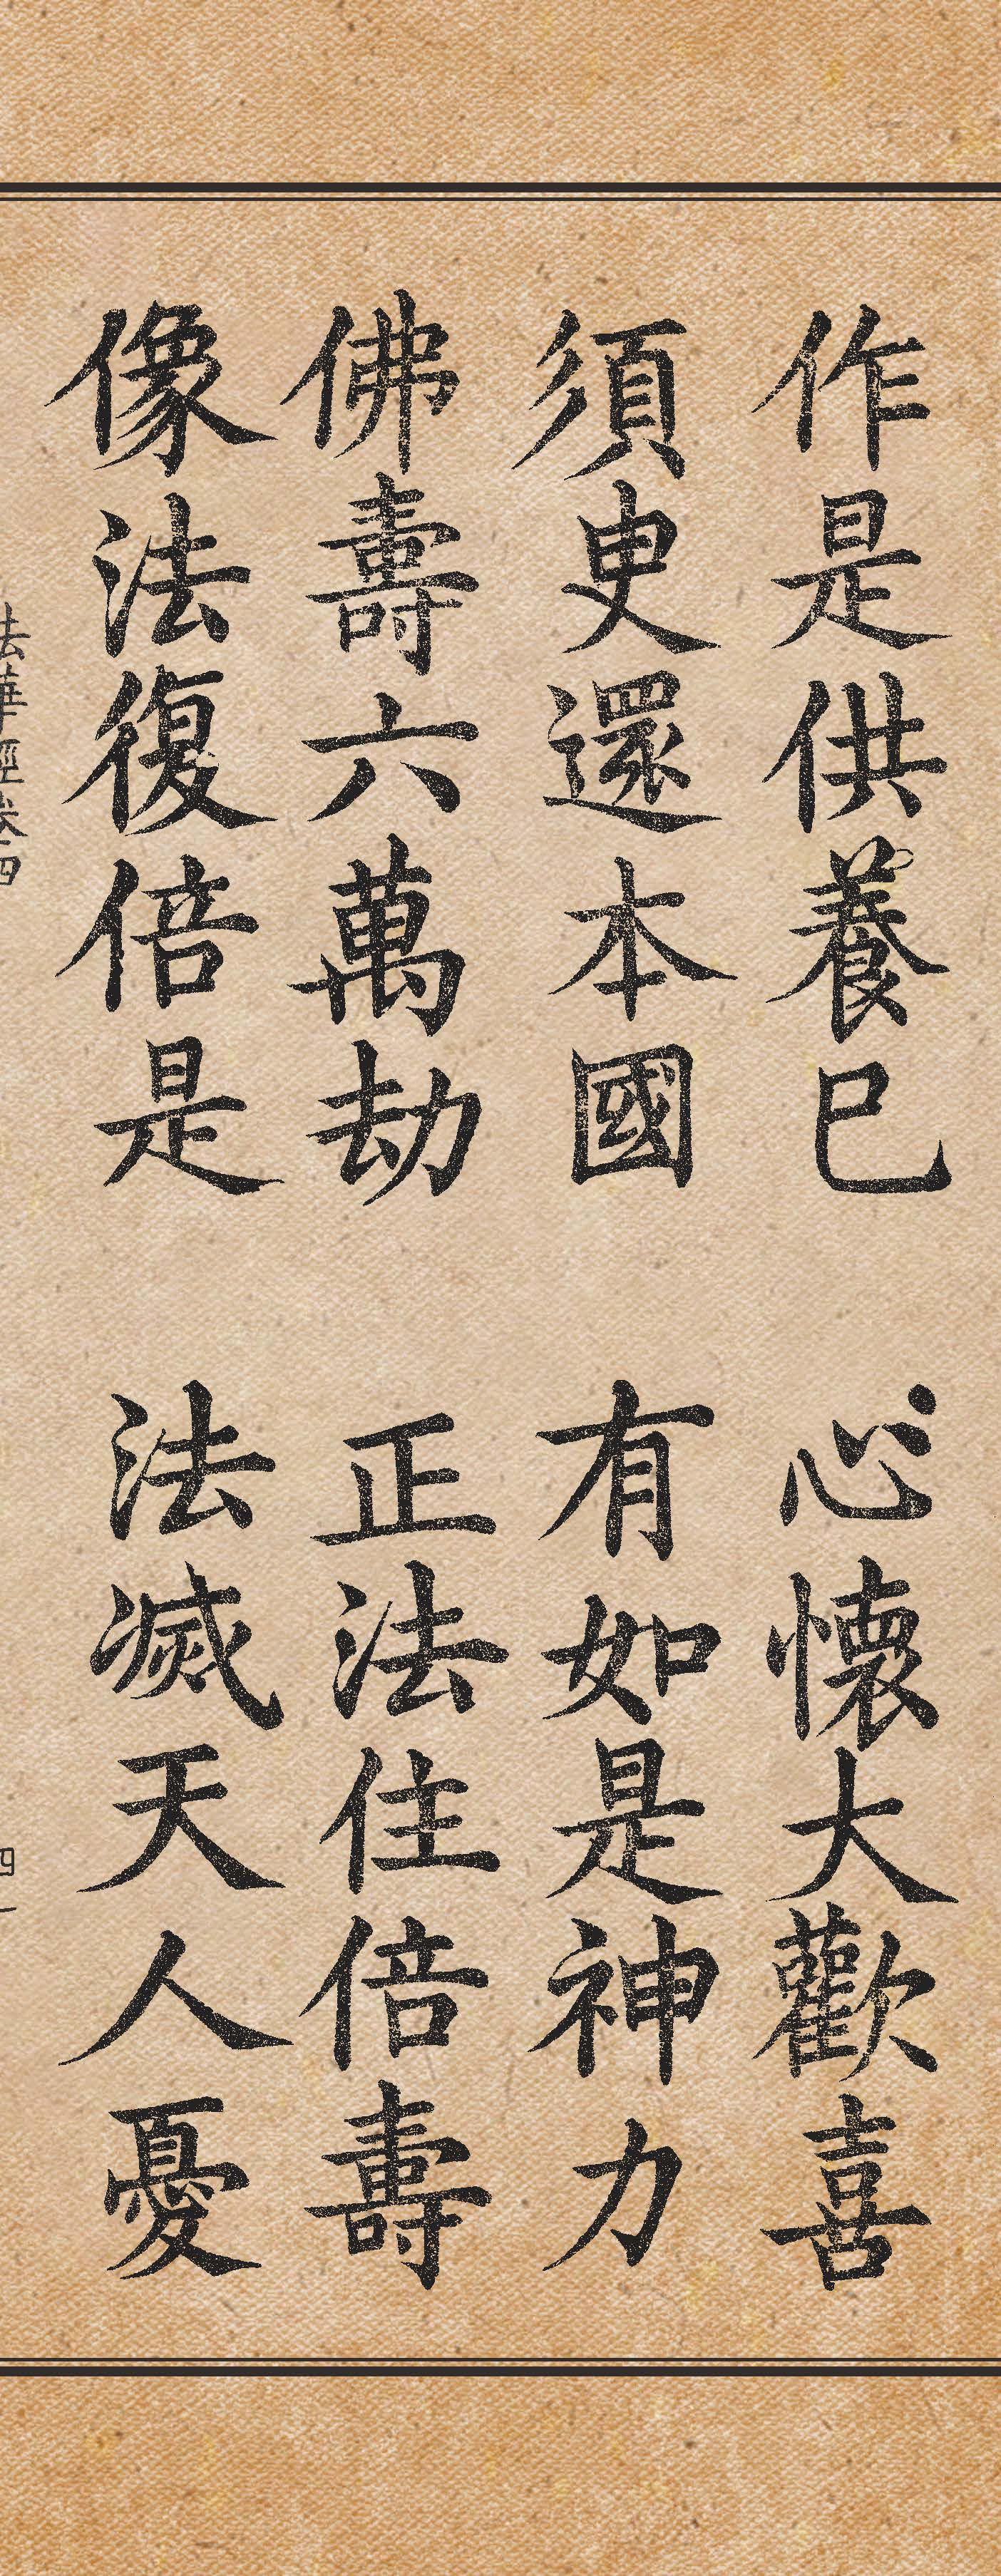 作是供養已 心懷大歡喜
須臾還本國 有如是神力
佛壽六萬劫 正法住倍壽
像法復倍是 法滅天人憂
法華經卷四 四